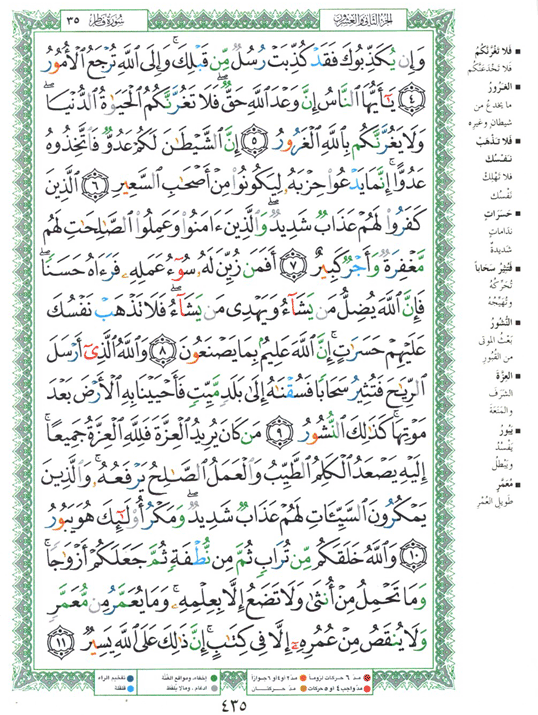 الجزء الثاني والعشرون
سُورَةُ فَاطِر ٣٥
وَإِن يُكَذِّبُوكَ فَقَدْ كُذِّبَتْ رُسُلٌ مِّن قَبْلِكَ ۚ وَإِلَى اللَّهِ تُرْجَعُ الْأُمُورُ
﴿٤﴾ يَا أَيُّهَا النَّاسُ إِنَّ وَعْدَ اللَّهِ حَقٌّ ۖ فَلَا تَغُرَّنَّكُمُ الْحَيَوٰةُ الدُّنْيَا ۖ
وَلَا يَغُرَّنَّكُم بِاللَّهِ الْغَرُورُ ﴿٥﴾ إِنَّ الشَّيْطَٰنَ لَكُمْ عَدُوٌّ فَاتَّخِذُوهُ
عَدُوًّا ۚ إِنَّمَا يَدْعُوا حِزْبَهُۥ لِيَكُونُوا مِنْ أَصْحَٰبِ السَّعِيرِ ﴿٦﴾ الَّذِينَ
كَفَرُوا لَهُمْ عَذَابٌ شَدِيدٌ ۖ وَالَّذِينَ ءَامَنُوا وَعَمِلُوا الصَّٰلِحَٰتِ لَهُم
مَّغْفِرَةٌ وَأَجْرٌ كَبِيرٌ ﴿٧﴾ أَفَمَن زُيِّنَ لَهُۥ سُوٓءُ عَمَلِهِۦ فَرَءَاهُ حَسَنًا ۖ
فَإِنَّ اللَّهَ يُضِلُّ مَن يَشَآءُ وَيَهْدِى مَن يَشَآءُ ۖ فَلَا تَذْهَبْ نَفْسُكَ
عَلَيْهِمْ حَسَرَٰتٍ ۚ إِنَّ اللَّهَ عَلِيمٌۢ بِمَا يَصْنَعُونَ ﴿٨﴾ وَاللَّهُ الَّذِىٓ أَرْسَلَ
الرِّيَٰحَ فَتُثِيرُ سَحَابًا فَسُقْنَٰهُ إِلَىٰ بَلَدٍ مَّيِّتٍ فَأَحْيَيْنَا بِهِ الْأَرْضَ بَعْدَ
مَوْتِهَا ۚ كَذَٰلِكَ النُّشُورُ ﴿٩﴾ مَن كَانَ يُرِيدُ الْعِزَّةَ فَلِلَّهِ الْعِزَّةُ جَمِيعًا ۚ
إِلَيْهِ يَصْعَدُ الْكَلِمُ الطَّيِّبُ وَالْعَمَلُ الصَّٰلِحُ يَرْفَعُهُۥ ۚ وَالَّذِينَ
يَمْكُرُونَ السَّيِّـَٔاتِ لَهُمْ عَذَابٌ شَدِيدٌ ۖ وَمَكْرُ أُولَٰٓئِكَ هُوَ يَبُورُ
﴿١٠﴾ وَاللَّهُ خَلَقَكُم مِّن تُرَابٍ ثُمَّ مِن نُّطْفَةٍ ثُمَّ جَعَلَكُمْ أَزْوَٰجًا ۚ
وَمَا تَحْمِلُ مِنْ أُنثَىٰ وَلَا تَضَعُ إِلَّا بِعِلْمِهِۦ ۚ وَمَا يُعَمَّرُ مِن مُّعَمَّرٍ
وَلَا يُنقَصُ مِنْ عُمُرِهِۦٓ إِلَّا فِى كِتَٰبٍ ۚ إِنَّ ذَٰلِكَ عَلَى اللَّهِ يَسِيرٌ ﴿١١﴾
فَلَا تَغُرَّنَّكُمُ
فلا تخدعنّكم
الغَرُورُ
ما يخدع من
شيطان وغيره
فَلَا تَذْهَبْ
نَفْسُكَ
فلا تهلك
نفسك
حَسَرَاتٍ
ندامات
شديدة
فَتُثِيرُ سَحَاباً
تحرّكه
وتهيّجه
النُّشُورُ
بعث الموتى
من القبور
العِزَّةَ
الشرف
والمنعة
يَبُورُ
يفسد
ويبطل
مُعَمَّرٍ
طويل العمر
مدّ ٦ حركات لزوماً
مدّ ٢ أو ٤ أو ٦ جوازاً
إخفاء، ومواقع الغنّة
تفخيم الراء
مدّ واجب ٤ أو ٥ حركات
مدّ حركتان
إدغام، وما لا يلفظ
قلقلة
٤٣٥